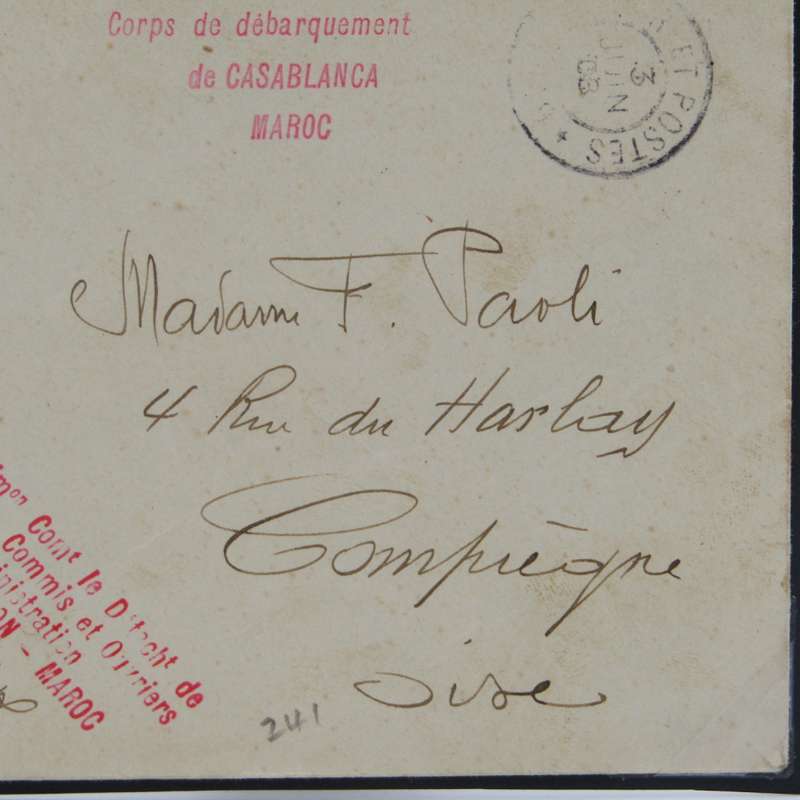 Corps de débarquement
de CASABLANCA
MAROC
ET POSTES *
3
JUIN
08
Madame F. Paoli
4 Rue du Harlay
Compiègne
Oise
Comt le Détacht de
Commis et Ouvriers
MAROC
241